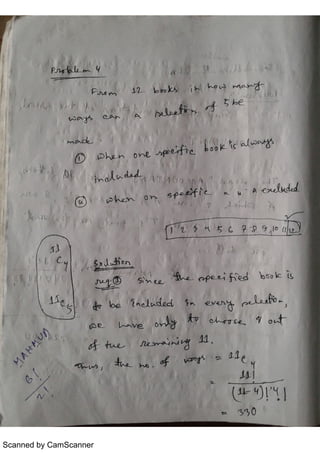 Problem 4
From 12 books in how many
ways can a selection of 5 be
made
① When one specific book is always
included.
② when on specific " " " excluded
1 2 3 4 5 6 7 8 9 10 11 12
11
C4
11C5
Solution
since the specified book is
to be included in every selection,
we have only to choose 4 out
of the remaining 11.
Thus, the no. of ways = 11C4
= 11!
(11-4)! 4!
= 330
MAHMUD
8!
2!
Scanned by CamScanner